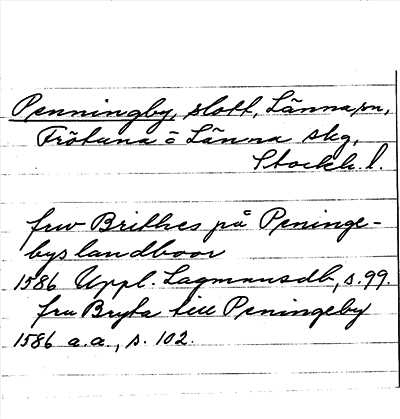 Penningby, slott, Länna sn,
Frötuna o Länna skg,
Stockh. l.
frw Brithes på Peninge-
bys landboor
1586 Uppl. Lagmansdb, s. 99.
fru Bryta till Peningeby
1586 a.a., s. 102.